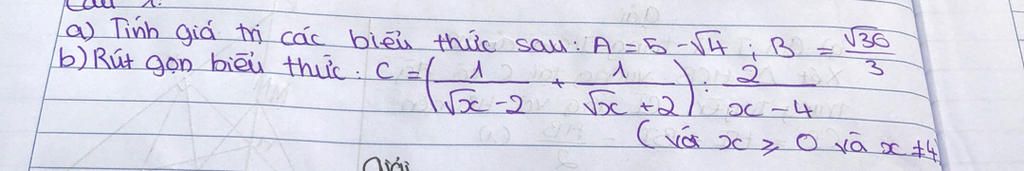 Câu 1:
a) Tính giá trị các biểu thức sau: A = 5 - √4 ; B = √36 / 3
b) Rút gọn biểu thức: C = ( 1 / (√x - 2) + 1 / (√x + 2) ) : 2 / (x - 4)
(với x ≥ 0 và x ≠ 4
Giải